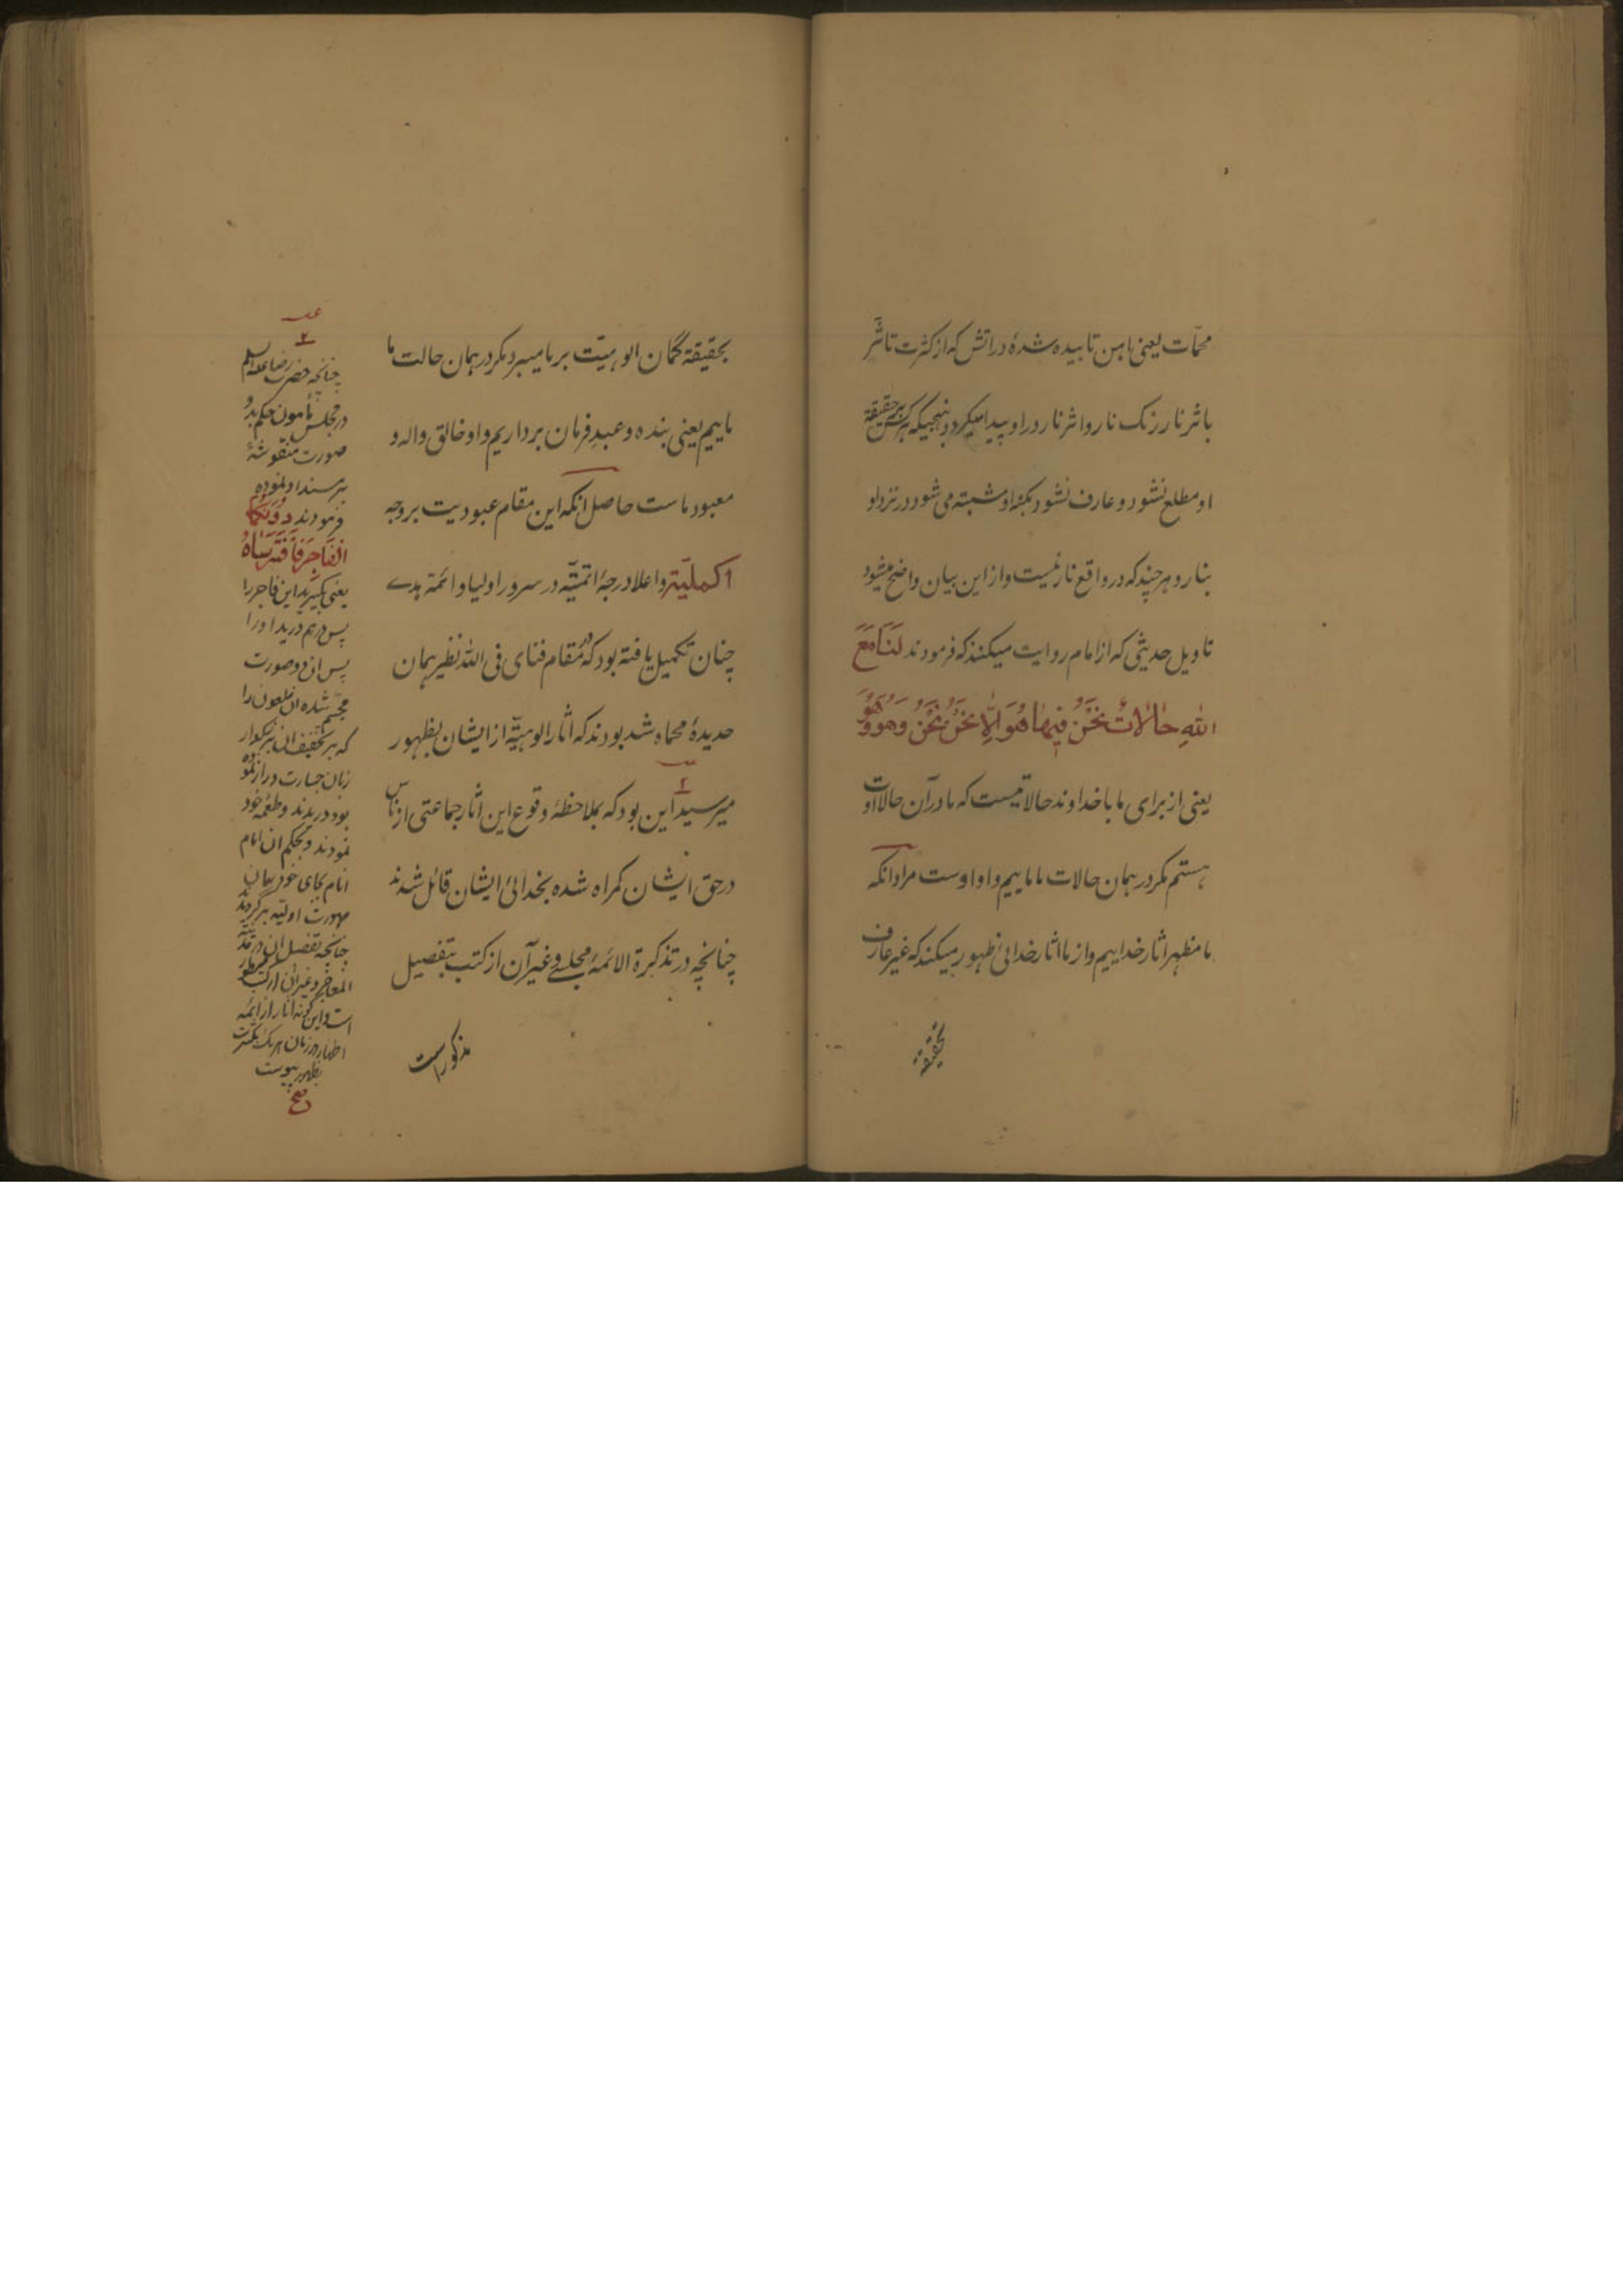 محمّات یعنی اهن تابیده شدهٔ در اتش که از کثرت تاثّر
باثر نار رنک نار و اثر نار در او پیدا میکردد بنهجیکه هرکس بر حقیقة
او مطلع نشود و عارف نشود بکنه او مشتبه می شود در نزد او
بنار و هر چند که در واقع نار نیست و از این بیان واضح میشود
تاویل حدیثی که از امام روایت میکنند که فرمودند لَنَا مَعَ
اللهِ حٰالاٰتٌ نَحْنُ فِیهٰا هُوَ اِلّا نَحْنُ نَحْنُ وَهُوَ هُوَ
یعنی از برای ما با خداوند حالاتیست که ما در آن حالات او
هستم مکر در همان حالات ما ماییم و او اوست مراد انکه
ما مظهر اثار خداییم و از ما اثار خدائی ظهور میکند که غیر عارف
بحقیقة
بحقیقة گمان الوهیّت بر ما میبرد مکر در همان حالت ما
ماییم یعنی بنده و عبدِ فرمان برداریم و او خالق و اله و
معبود ماست حاصل انکه این مقام عبودیت بر وجه
اکملیّة و اعلا درجهٔ اتمّیّه در سرور اولیا و ائمة هدی
چنان تکمیل یافته بود که در مقام فنای فی الله نظیر همان
حدیدهٔ محماه شد بودند که اثار الوهیّة از ایشان بظهور
میرسید این بود که بملاحظهٔ وقوع این اثار جماعتی از ناس
در حق ایشان کمراه شده بخدائی ایشان قائل شدند
چنانچه در تذکرة الائمهٔ مجلسی و غیر آن از کتب بتفصیل
مذکور است
۲
چنانچه حضرت رضا علیه السلم
در مجلس مأمون حکم بدو
صورت منقوشهٔ
بر مسند او نموده
فرمودند دُونَکُمَا
الفَاجِرَ فَافتَرِسَاهُ
یعنی بکیرید این فاجر را
پس درهم درید او را
پس ان دو صورت
مجسّم شده ان ملعون را
که بر تخفیف ان بزرکوار
زبان جسارت دراز نموده
بود دریدند و طعمه خود
نمودند و بحکم ان امام
انام بجای خود بهمان
صورت اولیه برکردیدند
چنانچه تفصیل ان در مدینة
المعاجز و غیر ان از کتب مذکور
است و این کونه اثار از ائمه
اطهار در زمان هر یک بکثرت
بظهور پیوست
صح